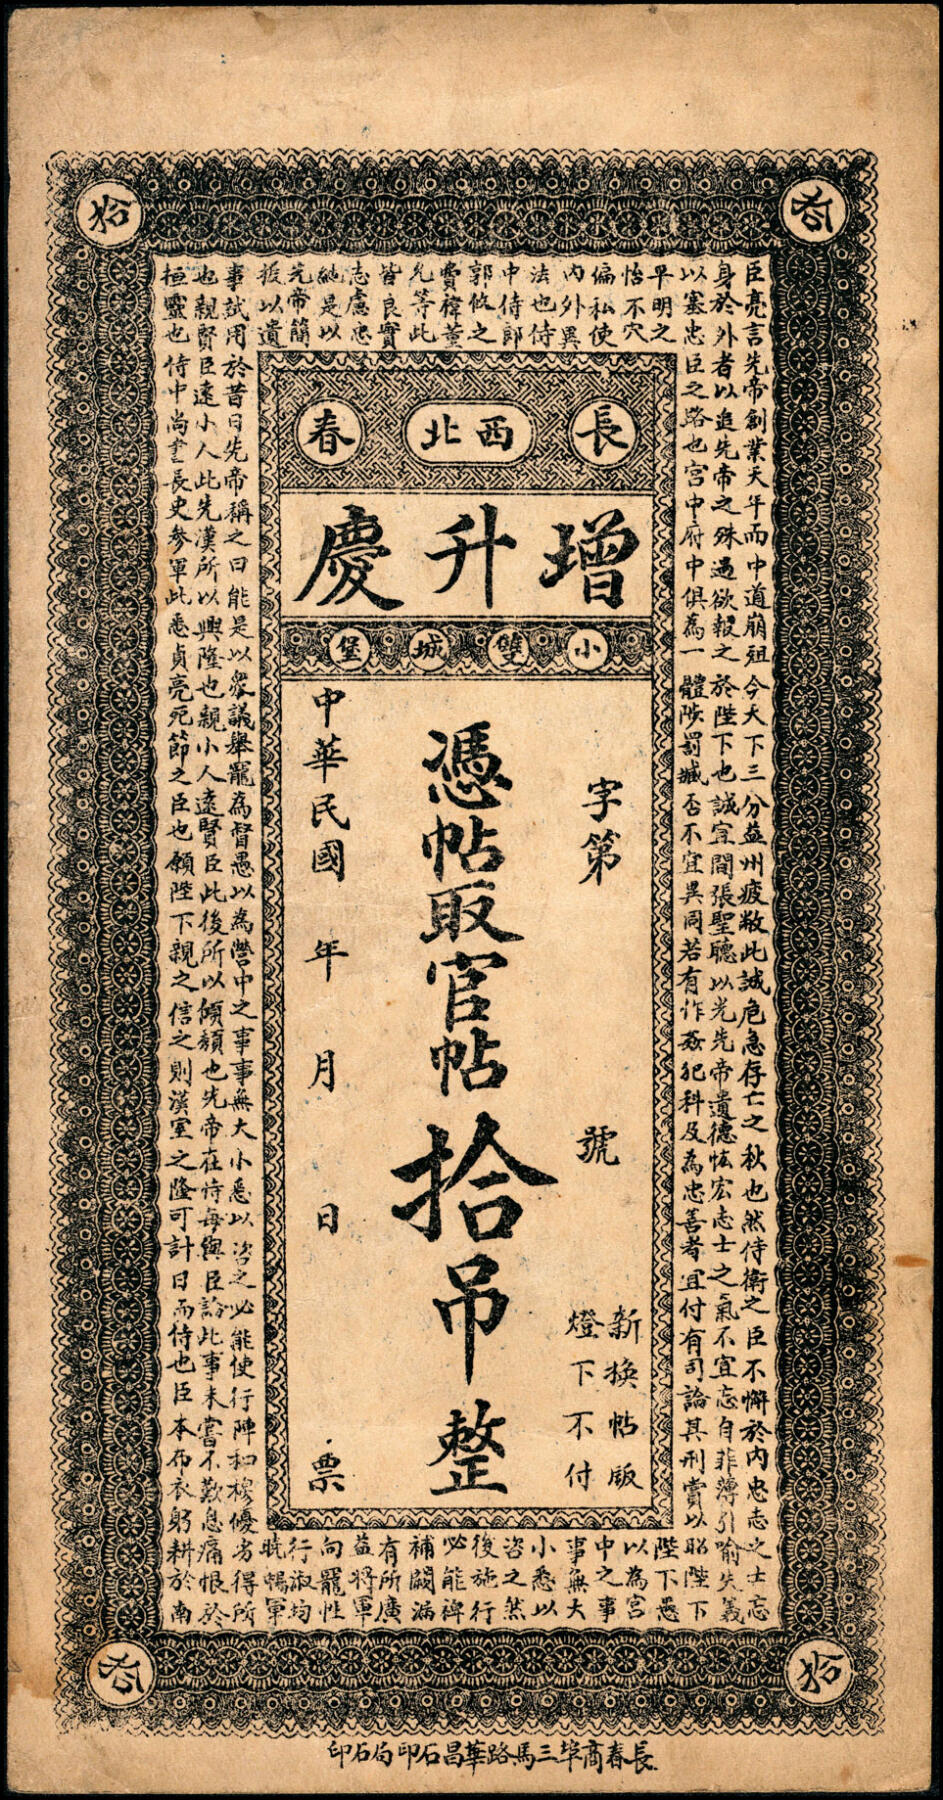 拾
長春
西北
增升慶
小雙城堡
字第 號
新換帖版
燈下不付
憑帖取官帖拾吊整
中華民國 年 月 日 票
臣亮言先帝創業天年而中道崩殂今天下三分益州疲敝此誠危急存亡之秋也然侍衛之臣不懈於內忠志之士忘
身於外者以追先帝之殊遇欲報之於陛下也誠宜開張聖聽以光先帝遺德恢宏志士之氣不宜忘自菲薄引喻失義
以塞忠臣之路也宮中府中俱為一體陟罰臧否不宜異同若有作姦犯科及為忠善者宜付有司論其刑賞以昭陛下
平明之
怡不穴
偏私使
內外異
法也侍
中侍郎
郭攸之
費禕董
允等此
皆良實
志慮忠
純是以
先帝簡
拔以遺
陛下愚
以為宮
中之事
事無大
小悉以
咨之然
後施行
必能裨
補闕漏
有所廣
益將軍
向寵性
行淑均
曉暢軍
事試用於昔日先帝稱之曰能是以眾議舉寵為督愚以為營中之事事無大小悉以咨之必能使行陣和穆優劣得所
也親賢臣遠小人此先漢所以興隆也親小人遠賢臣此後所以傾頹也先帝在時每與臣論此事未嘗不歎息痛恨於
桓靈也侍中尚書長史參軍此悉貞亮死節之臣也願陛下親之信之則漢室之隆可計日而侍也臣本布衣躬耕於南
拾
長春商埠三馬路華昌石印局石印